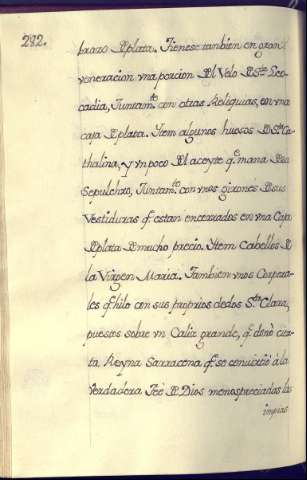 282.
brazo de plata. Tienese tambien en gran
veneracion vna porcion del Velo de Sta. Leo-
cadia, Juntamte. con otras Reliquias, en vna
caja de plata. Item algunos huesos de Sta. Ca-
thalina, y vn poco del aceyte qe. mana de su
Sepulchro, Juntamto. con vnos girones de sus
Vestiduras qe. estan encerrados en vna Caja
de plata de mucho precio. Item Cabellos de
la Virgen Maria. Tambien vnos Corpora-
les qe. hilo con sus proprios dedos Sta. Clara,
puestos sobre vn Caliz grande, qe. donò cier-
ta Reyna Sarracena qe. se convirtiò à la
Verdadera Feè de Dios menospreciadas las
impias